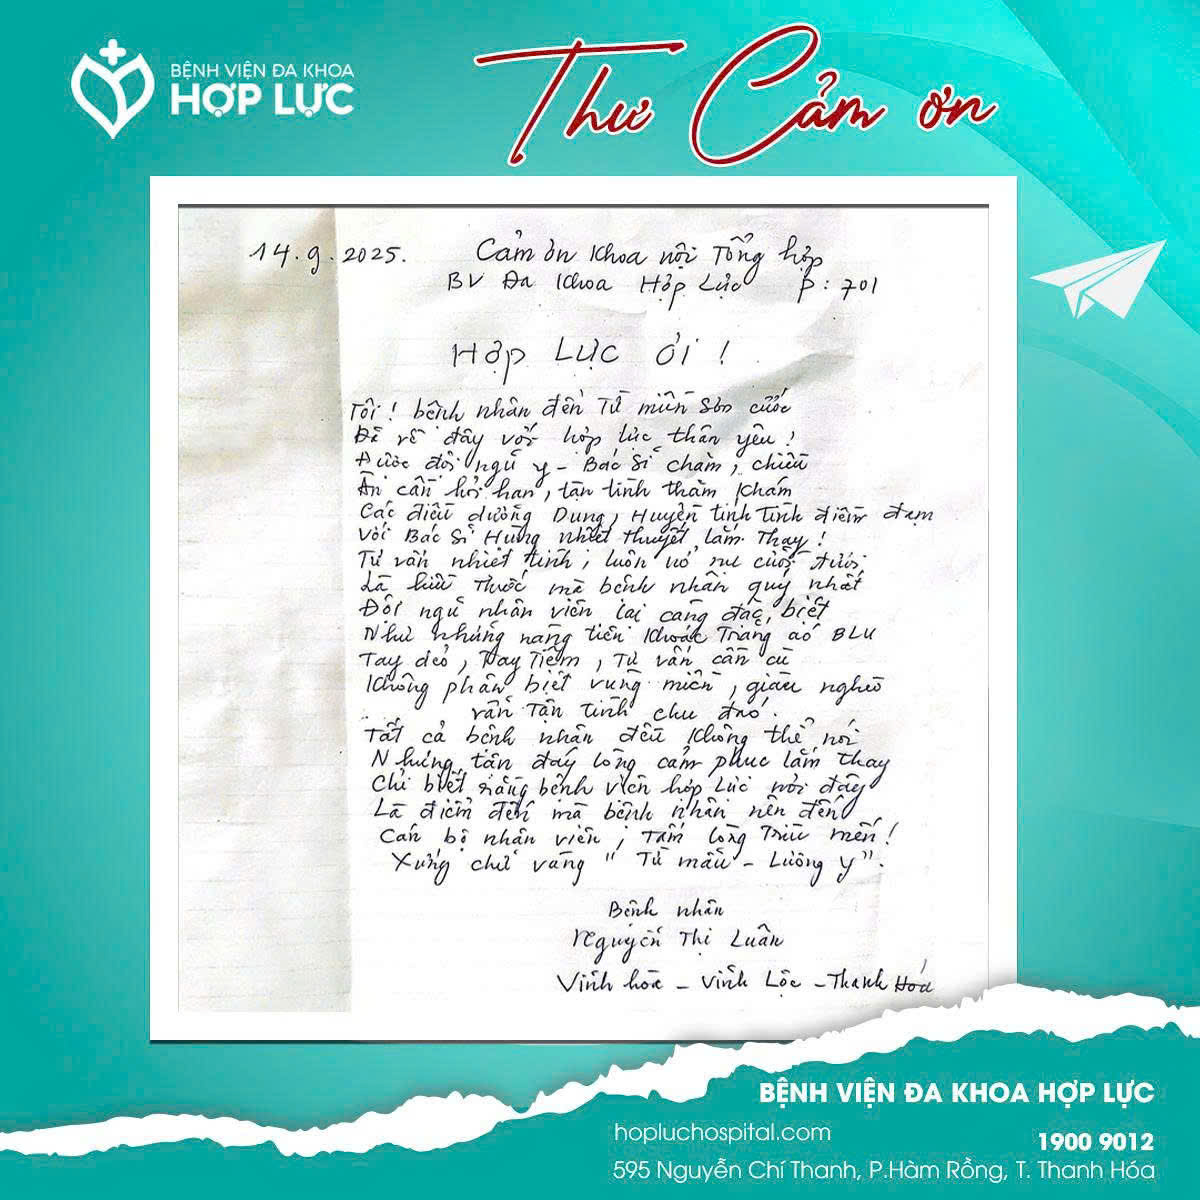 BỆNH VIỆN ĐA KHOA
HỢP LỰC
Thư Cảm ơn
14.9.2025.
Cảm ơn Khoa nội Tổng hợp
BV Đa Khoa Hợp Lực P: 701
Hợp Lực ơi!
Tôi! bệnh nhân đến Từ miền Sơn cước
Đã về đây với hợp lực thân yêu!
Được đội ngũ y - Bác Sĩ chăm, chiều
Ân cần hỏi han, tận tình thăm khám
Các điều dưỡng Dung, Huyền tính tình điềm đạm
Với Bác Sĩ Hùng nhiệt thuyết lắm Thay!
Tư vấn nhiệt tình, luôn nở nụ cười tươi
Là liều Thuốc mà bệnh nhân quý nhất
Đội ngũ nhân viên lại càng đặc biệt
Như những nàng tiên Khoác Trắng áo BLU
Tay dẻo, Tay Tiêm, Tư vấn cần cù
Không phân biệt vùng miền, giàu nghèo
vẫn Tận tình chu đáo.
Tất cả bệnh nhân đều không thể nói
Nhưng tận đáy lòng cảm phục lắm thay
Chỉ biết rằng bệnh viện hợp Lực nơi đây
Là điểm đến mà bệnh nhân nên đến
Cán bộ nhân viên, Tấm lòng Trìu mến!
Xứng chữ vàng " Từ mẫu - Lương y".
Bệnh nhân
Nguyễn Thị Luân
Vĩnh hòa - Vĩnh Lộc - Thanh Hóa
BỆNH VIỆN ĐA KHOA HỢP LỰC
hopluchospital.com
1900 9012
595 Nguyễn Chí Thanh, P.Hàm Rồng, T. Thanh Hóa